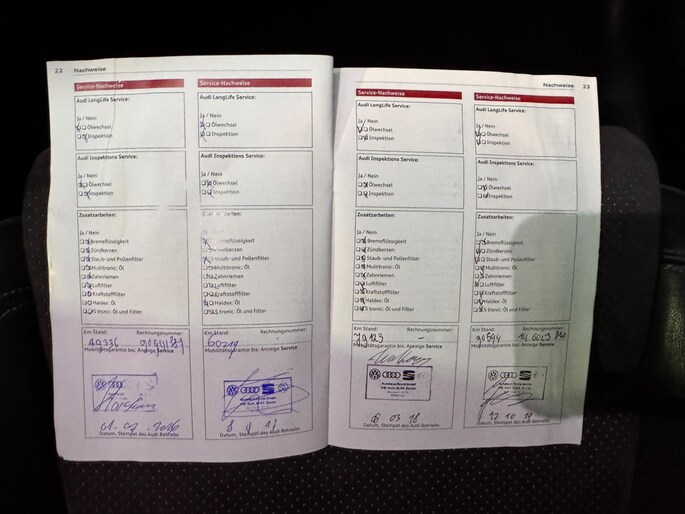 22 Nachweise
Service-Nachweise
Audi LongLife Service:
Ja / Nein
Ölwechsel
Inspektion
Audi Inspektions Service:
Ja / Nein
Ölwechsel
Inspektion
Zusatzarbeiten:
Ja / Nein
Bremsflüssigkeit
Zündkerzen
Staub- und Pollenfilter
Multitronic: Öl
Zahnriemen
Luftfilter
Kraftstofffilter
Haldex: Öl
S tronic: Öl und Filter
Km Stand: Rechnungsnummer:
Mobilitätsgarantie bis: Anzeige Service
Audi
Datum, Stempel des Audi Betriebs
Service-Nachweise
Audi LongLife Service:
Ja / Nein
Ölwechsel
Inspektion
Audi Inspektions Service:
Ja / Nein
Ölwechsel
Inspektion
Ja / Nein
Bremsflüssigkeit
Staub- und Pollenfilter
Multitronic: Öl
Zahnriemen
Luftfilter
Kraftstofffilter
Haldex: Öl
S tronic: Öl und Filter
Km Stand: Rechnungsnummer:
60219
Mobilitätsgarantie bis: Anzeige Service
Datum, Stempel des Audi Betriebs
Nachweise 23
Service-Nachweise
Audi LongLife Service:
Ja / Nein
Ölwechsel
Inspektion
Audi Inspektions Service:
Ja / Nein
Ölwechsel
Inspektion
Zusatzarbeiten:
Ja / Nein
Bremsflüssigkeit
Zündkerzen
Staub- und Pollenfilter
Multitronic: Öl
Zahnriemen
Luftfilter
Kraftstofffilter
Haldex: Öl
S tronic: Öl und Filter
Km Stand: Rechnungsnummer:
79123 -
Mobilitätsgarantie bis: Anzeige Service
03 18
Datum, Stempel des Audi Betriebs
Service-Nachweise
Audi LongLife Service:
Ja / Nein
Ölwechsel
Inspektion
Audi Inspektions Service:
Ja / Nein
Ölwechsel
Inspektion
Zusatzarbeiten:
Ja / Nein
Bremsflüssigkeit
Zündkerzen
Staub- und Pollenfilter
Multitronic: Öl
Zahnriemen
Luftfilter
Kraftstofffilter
Haldex: Öl
S tronic: Öl und Filter
Km Stand: Rechnungsnummer:
90594
Mobilitätsgarantie bis: Anzeige Service
Datum, Stempel des Audi Betriebs